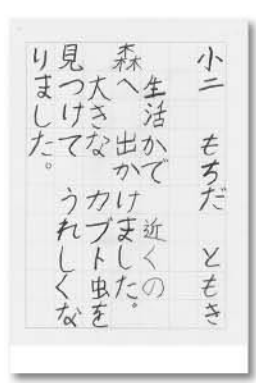 小二　もちだ　ともき
生活かで　近くの
森へ　出かけました。
大きな　カブト虫を
見つけて　うれしくな
りました。